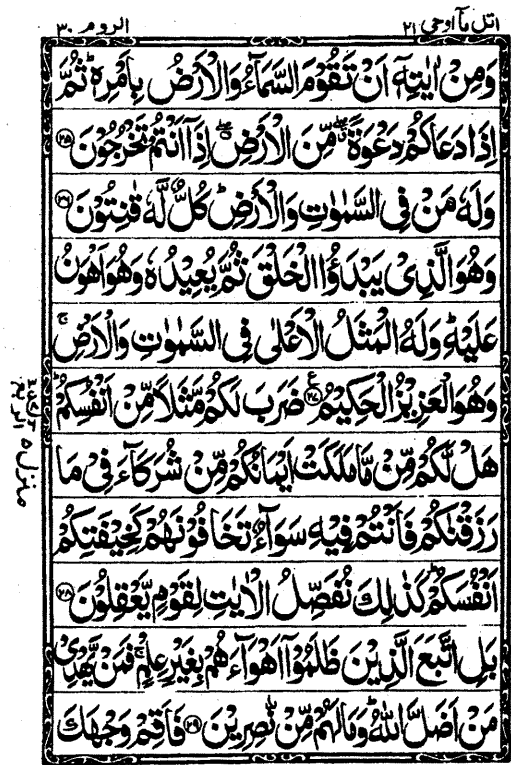 اتل مآ اوحی ٢١
الروم ٣٠
وَمِنْ اٰيٰتِهٖٓ اَنْ تَقُوْمَ السَّمَآءُ وَالْاَرْضُ بِاَمْرِهٖ ؕ ثُمَّ
اِذَا دَعَاكُمْ دَعْوَةً ۖ مِّنَ الْاَرْضِ ۖ اِذَآ اَنْتُمْ تَخْرُجُوْنَ ﴿٢٥﴾
وَلَهٗ مَنْ فِى السَّمٰوٰتِ وَالْاَرْضِ ؕ كُلٌّ لَّهٗ قٰنِتُوْنَ ﴿٢٦﴾
وَهُوَ الَّذِىْ يَبْدَؤُا الْخَلْقَ ثُمَّ يُعِيْدُهٗ وَهُوَ اَهْوَنُ
عَلَيْهِ ؕ وَلَهُ الْمَثَلُ الْاَعْلٰى فِى السَّمٰوٰتِ وَالْاَرْضِ ۚ
وَهُوَ الْعَزِيْزُ الْحَكِيْمُ ﴿٢٧﴾ ع ضَرَبَ لَكُمْ مَّثَلًا مِّنْ اَنْفُسِكُمْ ؕ
هَلْ لَّكُمْ مِّنْ مَّا مَلَكَتْ اَيْمَانُكُمْ مِّنْ شُرَكَآءَ فِىْ مَا
رَزَقْنٰكُمْ فَاَنْتُمْ فِيْهِ سَوَآءٌ تَخَافُوْنَهُمْ كَخِيْفَتِكُمْ
اَنْفُسَكُمْ ؕ كَذٰلِكَ نُفَصِّلُ الْاٰيٰتِ لِقَوْمٍ يَّعْقِلُوْنَ ﴿٢٨﴾
بَلِ اتَّبَعَ الَّذِيْنَ ظَلَمُوْٓا اَهْوَآءَهُمْ بِغَيْرِ عِلْمٍ ۚ فَمَنْ يَّهْدِىْ
مَنْ اَضَلَّ اللّٰهُ ؕ وَمَا لَهُمْ مِّنْ نّٰصِرِيْنَ ﴿٢٩﴾ فَاَقِمْ وَجْهَكَ
منزل ٥